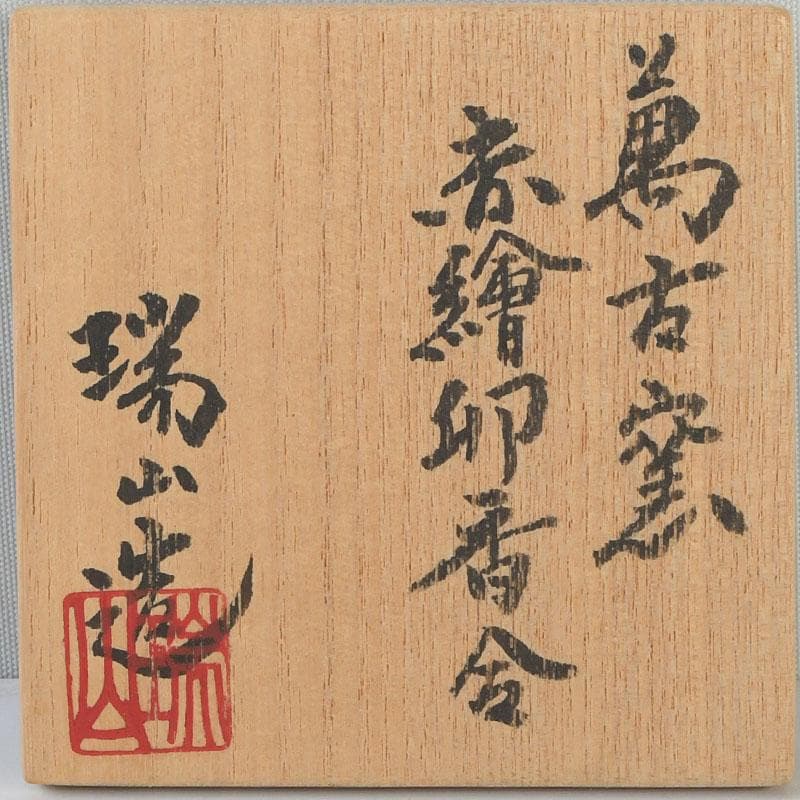 萬古窯
赤繪卯香合
瑞山造
瑞山